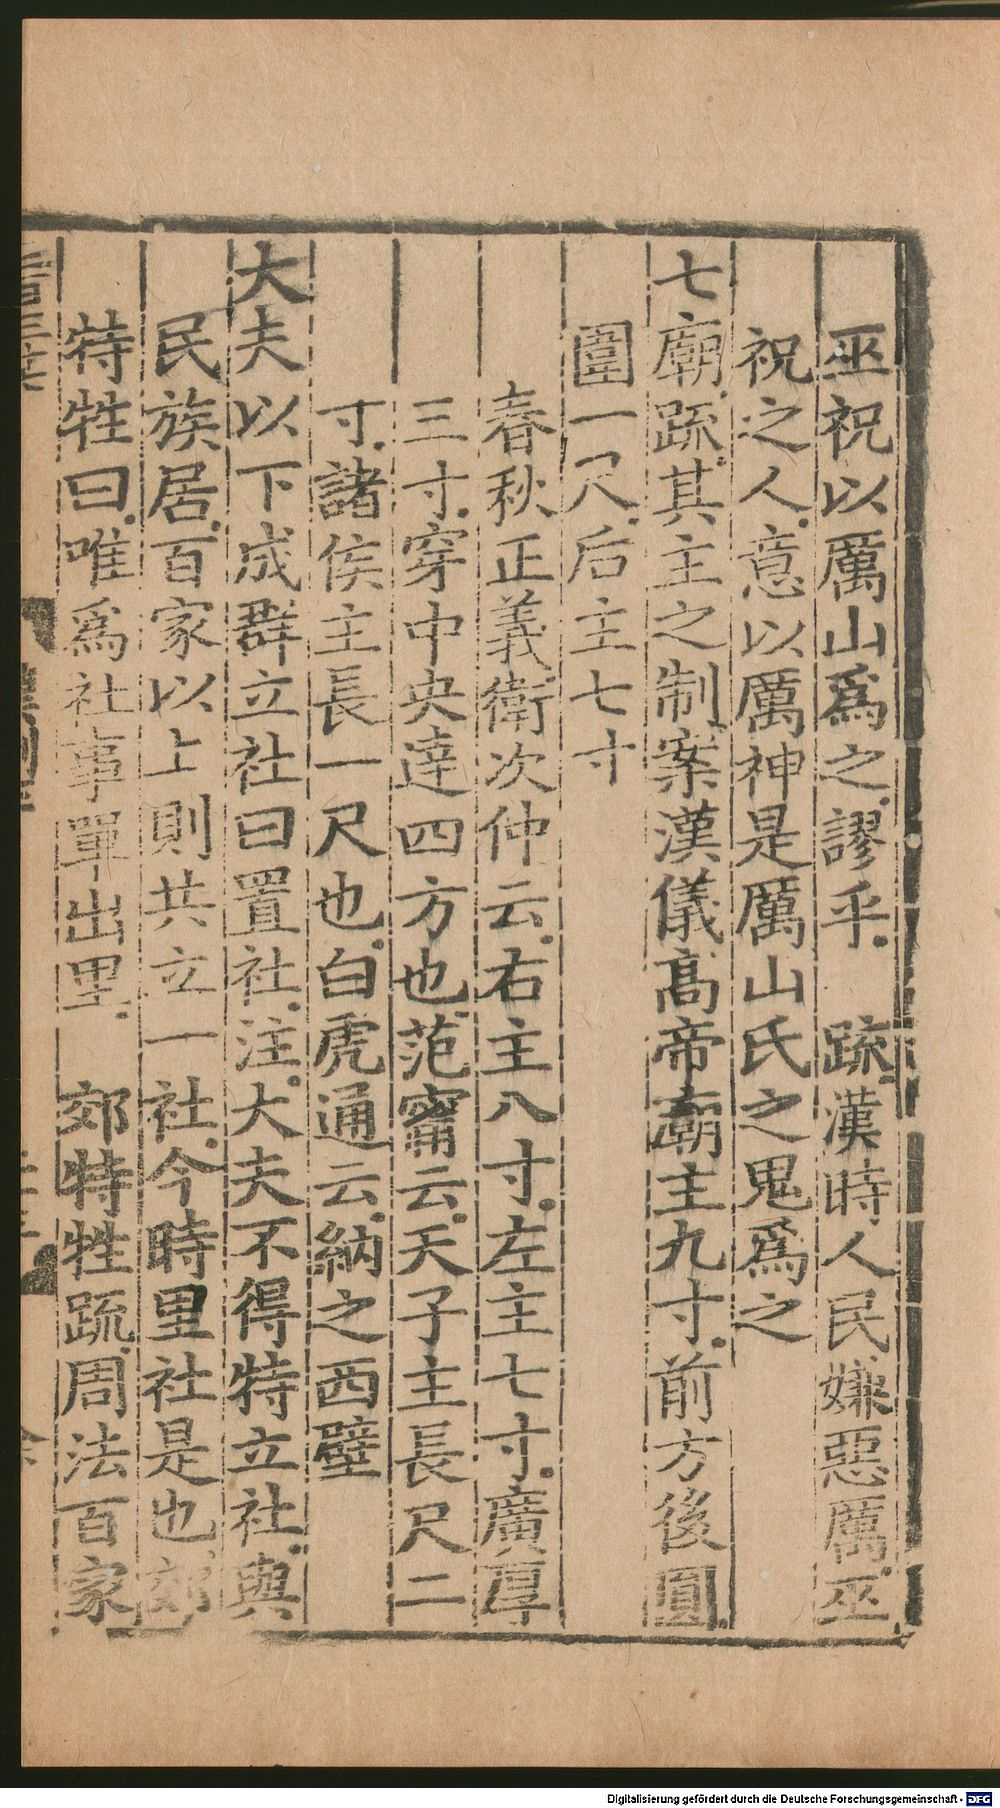 巫祝以厲山爲之謬乎　疏漢時人民嫌惡厲巫
祝之人意以厲神是厲山氏之鬼爲之
七廟疏其主之制案漢儀髙帝廟主九寸前方後圓
圍一尺后主七寸
春秋正義衛次仲云右主八寸左主七寸廣厚
三寸穿中央達四方也范甯云天子主長尺二
寸諸侯主長一尺也白虎通云納之西壁
大夫以下成群立社曰置社注大夫不得特立社與
民族居百家以上則共立一社今時里社是也郊
特牲曰唯爲社事單出里　郊特牲疏周法百家
Digitalisierung gefördert durch die Deutsche Forschungsgemeinschaft - DFG